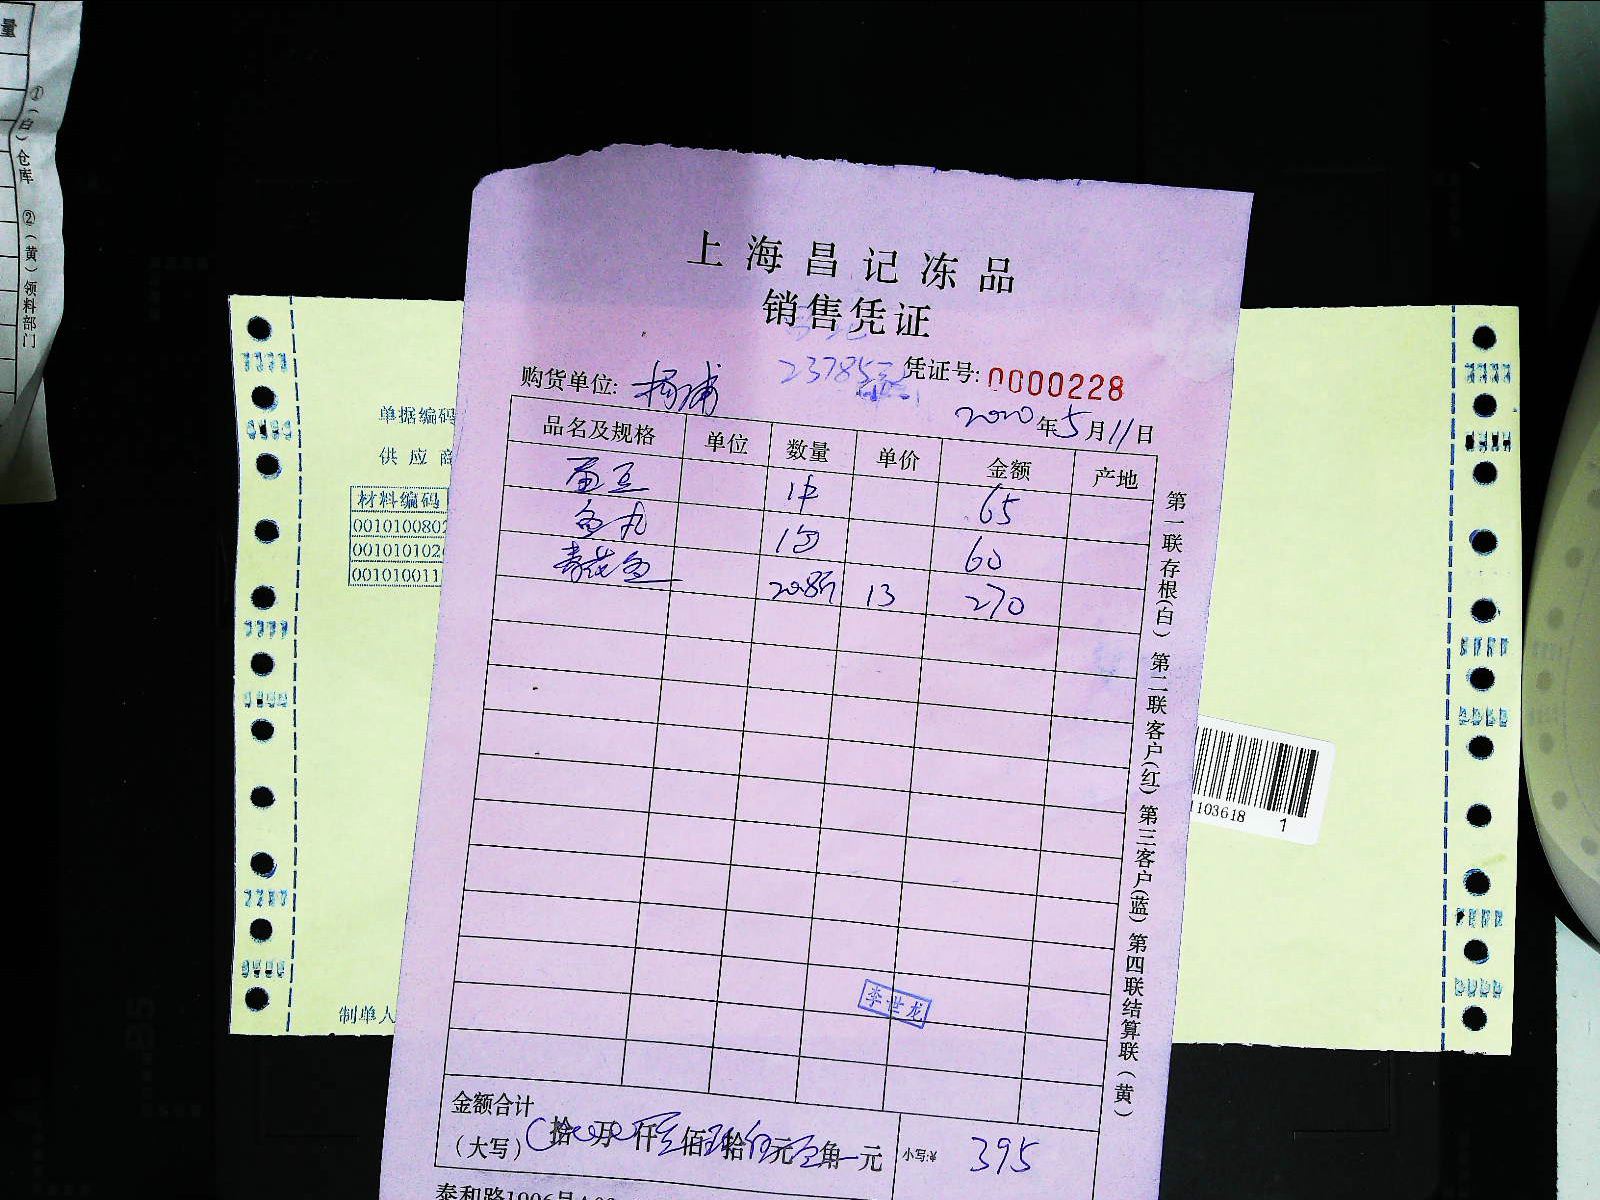 量
①(白)仓库 ②(黄)领料部门
上海昌记冻品
销售凭证
购货单位: 杨浦
凭证号: 0000228
2020年5月11日
品名及规格 单位 数量 单价 金额 产地
65
鱼丸 60
青花鱼 20.8斤 13 270
第一联存根(白) 第二联客户(红) 第三客户(蓝) 第四联结算联(黄)
李世龙
金额合计
(大写) 拾 万 仟 佰 拾 元 角 元 小写:¥ 395
单据编码
供应商
材料编码
00101008
00101010
001010011
制单人
1103618 1